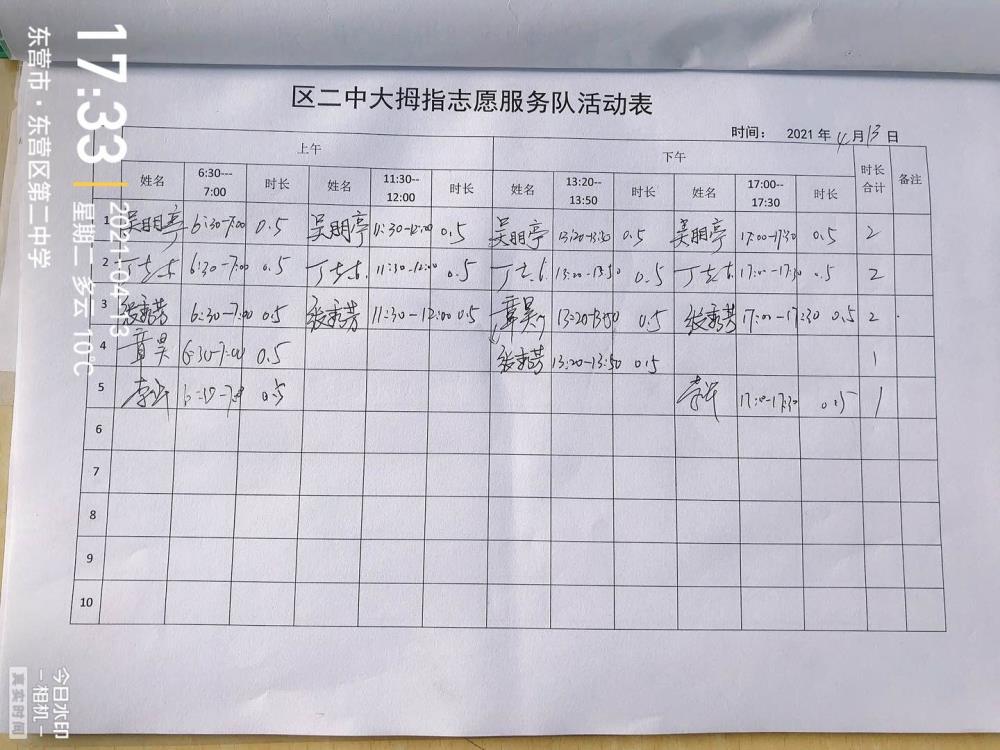 区二中大拇指志愿服务队活动表
时间： 2021 年 4 月 13 日
上午 下午 时长合计 备注
姓名 6:30---7:00 时长 姓名 11:30--12:00 时长 姓名 13:20--13:50 时长 姓名 17:00--17:30 时长
1 吴明亭 6:30-7:00 0.5 吴明亭 11:30-12:00 0.5 吴明亭 13:20-13:50 0.5 吴明亭 17:00-17:30 0.5 2
2 6:30-7:00 0.5 11:30-12:00 0.5 13:20-13:50 0.5 17:00-17:30 0.5 2
3 张秀芳 6:30-7:00 0.5 张秀芳 11:30-12:00 0.5 章昊 13:20-13:50 0.5 张秀芳 17:00-17:30 0.5 2
4 章昊 6:30-7:00 0.5 张秀芳 13:20-13:50 0.5 1
5 0.5 17:00-17:30 0.5 1
6
7
8
9
10
17:33
2021-04-13
星期二 多云 10℃
东营市·东营区第二中学
今日水印
-相机-
真实时间